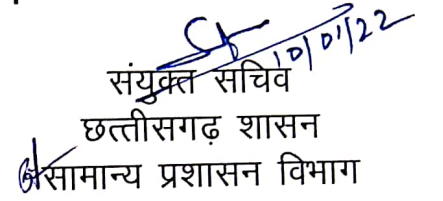 10/01/22
संयुक्त सचिव
छत्तीसगढ़ शासन
सामान्य प्रशासन विभाग